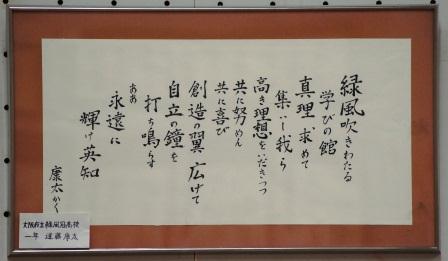 緑風吹きわたる
学びの館
真理求めて
集いし我ら
高き理想をいだきつつ
共に努めん
共に喜び
創造の翼広げて
自立の鐘を
打ち鳴らす
ああ
永遠に
輝け英知
康太かく
大阪府立緑風冠高校
一年 康太